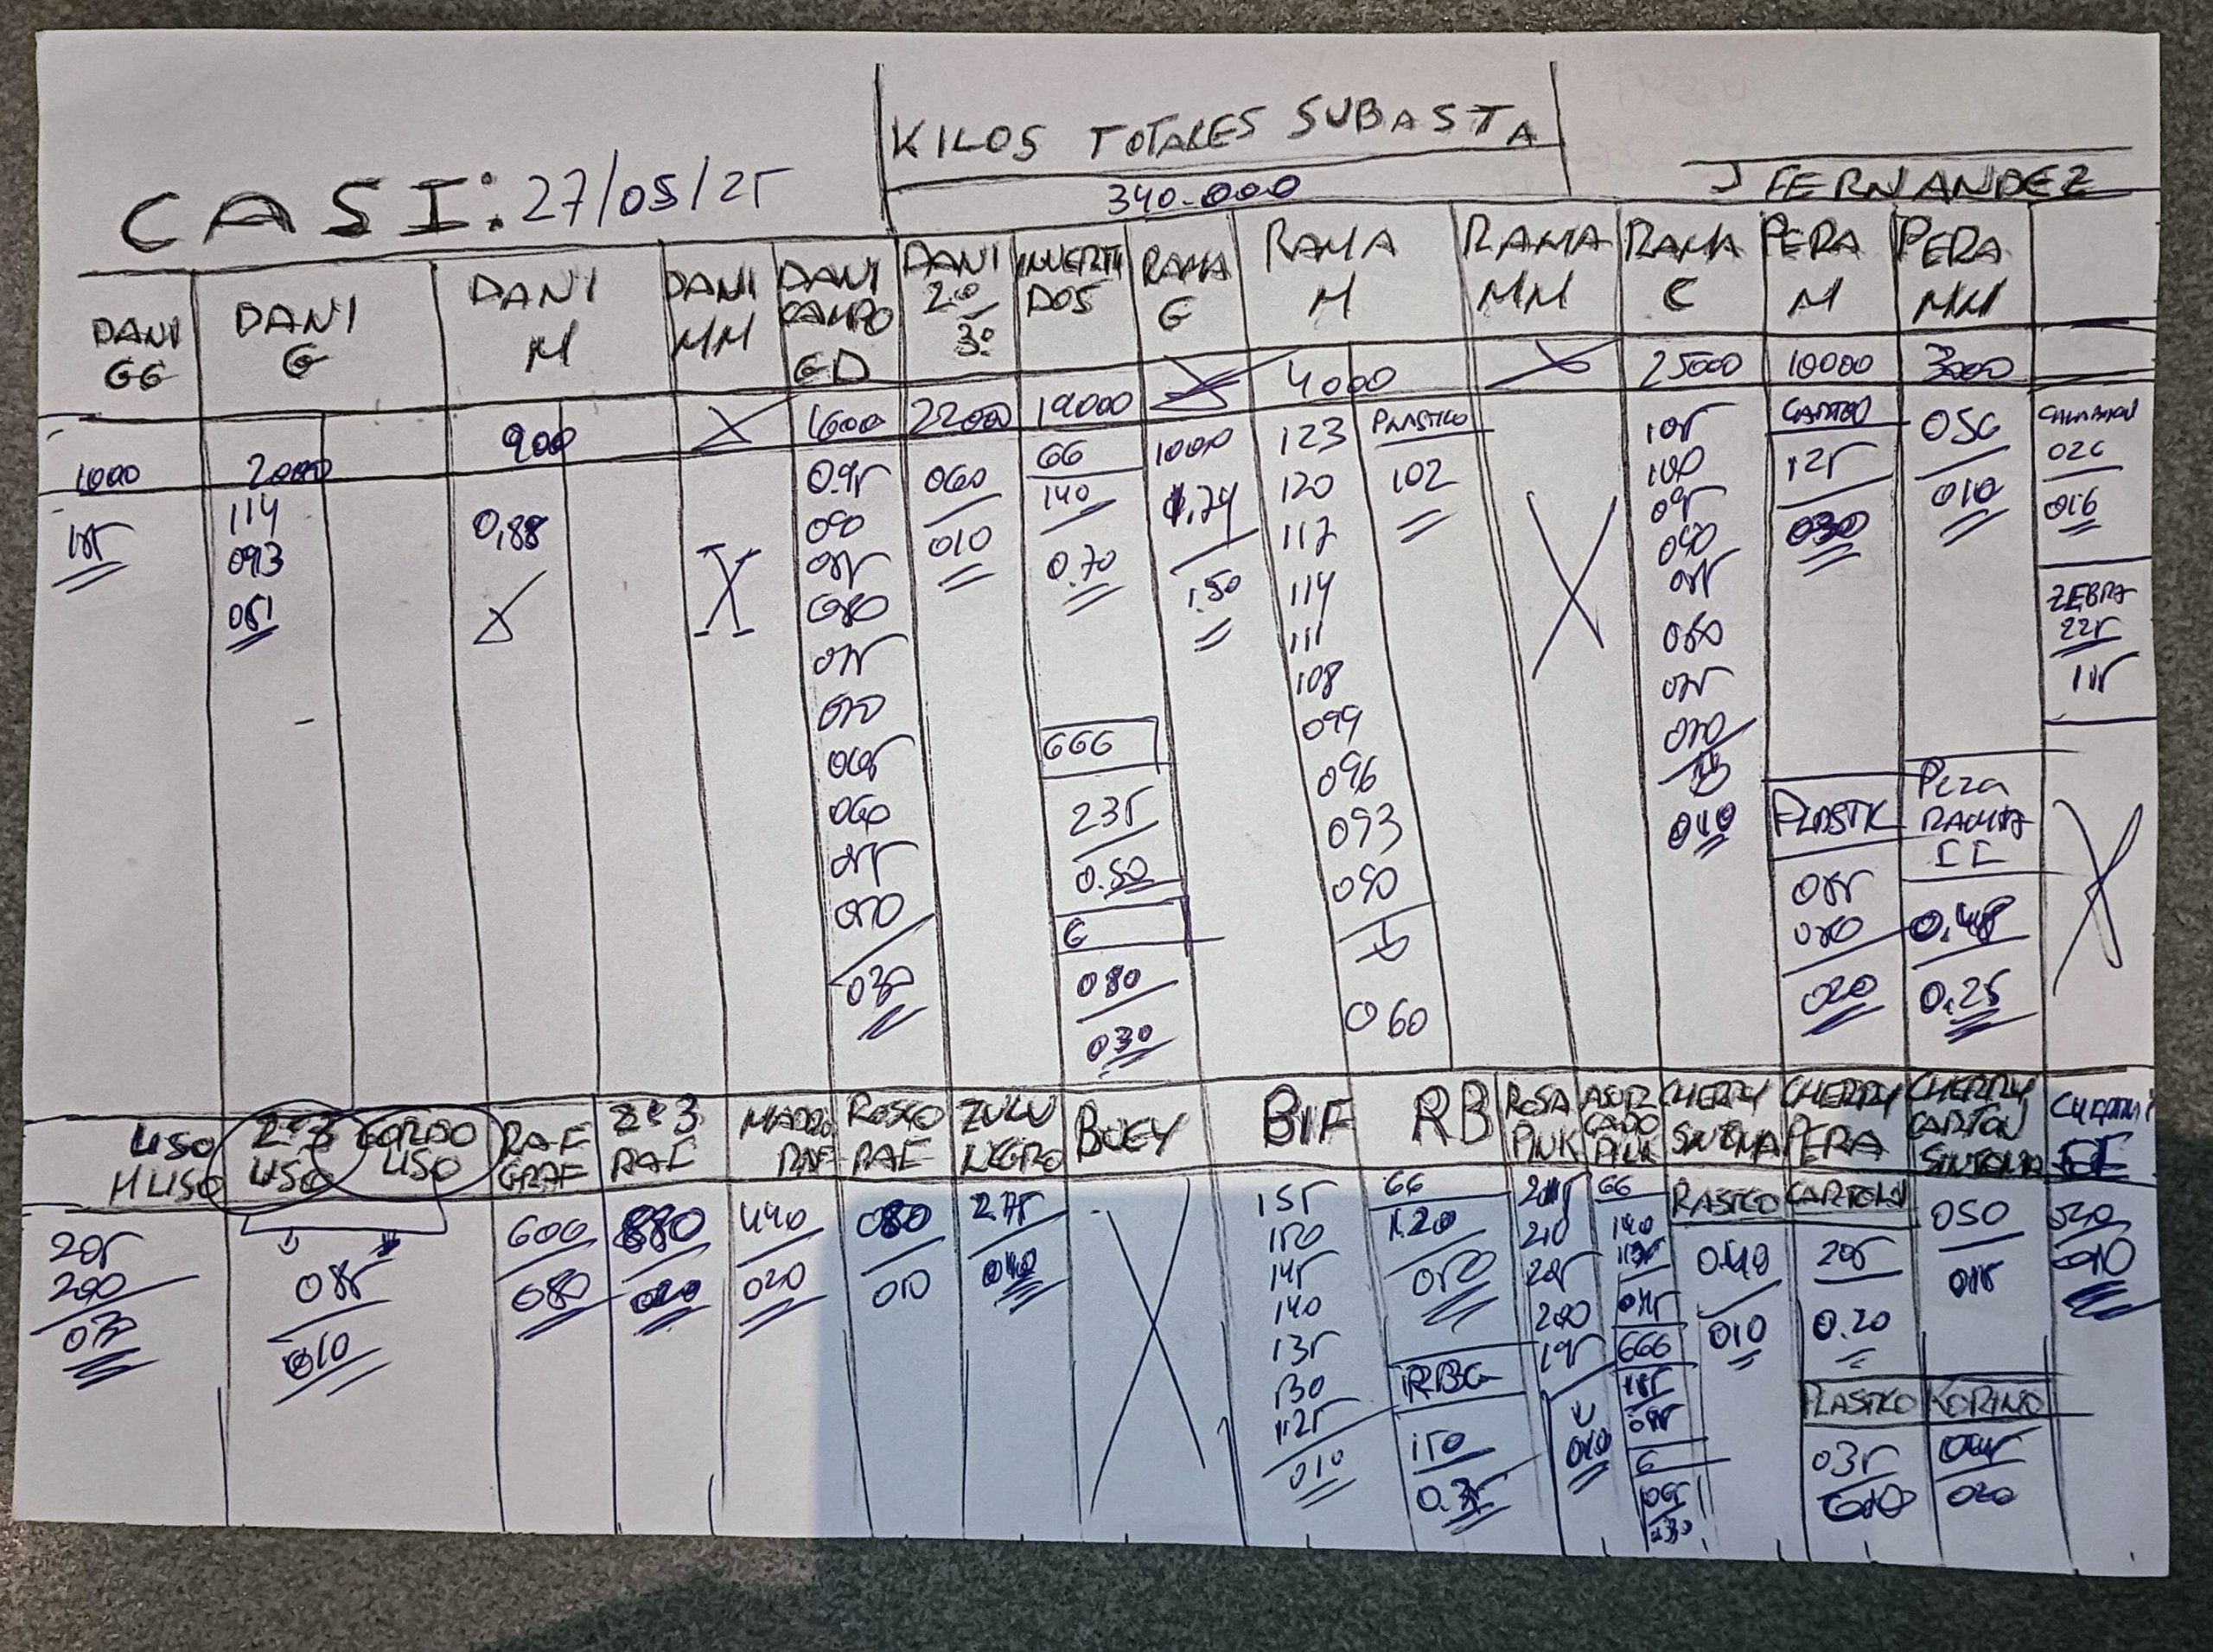 KILOS TOTALES SUBASTA
CASI: 27/05/25
340.000
J FERNANDEZ
DANI GG
DANI G
DANI M
DANI MM
DANI CAMPO GD
DANI 2º 3º
INVERTIDOS
RAMA G
RAMA M
RAMA MM
RAMA C
PERA M
PERA MM
1000
2000
900
X
1600
2200
19000
4000
X
25000
10000
3000
114
093
0,88
X
0.95
090
085
080
075
070
065
060
055
050
030
060
010
66
140
0.70
666
235
0.50
G
080
030
1000
1.50
123
120
117
114
111
108
099
096
093
090
060
PLASTICO
102
X
105
100
095
090
085
080
075
070
010
CARTON
125
030
PLASTIC
020
056
010
Pera
RAMA
0.48
0.25
026
016
ZEBRA
225
115
X
LISO
M LISO
2º 3
LISO
GORDO
LISO
RAF
GRAF
2º 3
RAF
RAF
ROSCO
RAF
ZULU
NEGRO
BUEY
BIF
RB
ROSA
PINK
ASUR
CADO
PINK
CHERRY
SINTONIA
CHERRY
PERA
CHERRY
CARTON
SINTONIA
CHERRY
205
200
085
010
600
080
880
020
440
020
080
010
275
040
X
155
150
145
140
135
130
125
010
66
1.20
050
RBG
150
0.35
210
205
200
195
010
66
140
666
G
065
030
0.40
010
CARTON
205
0.20
PLASTICO
035
050
KORINO
020
010